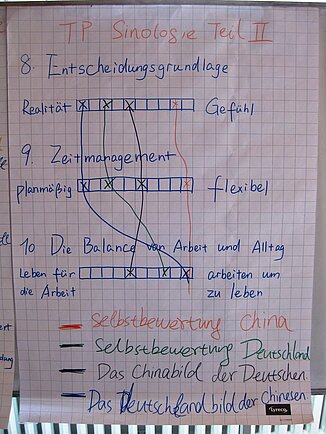 TP Sinologie Teil II
8. Entscheidungsgrundlage
Realität Gefühl
9. Zeitmanagement
planmäßig flexibel
10 Die Balance von Arbeit und Alltag
Leben für die Arbeit
arbeiten um zu leben
Selbstbewertung China
Selbstbewertung Deutschland
Das Chinabild der Deutschen
Das Deutschlandbild der Chinesen